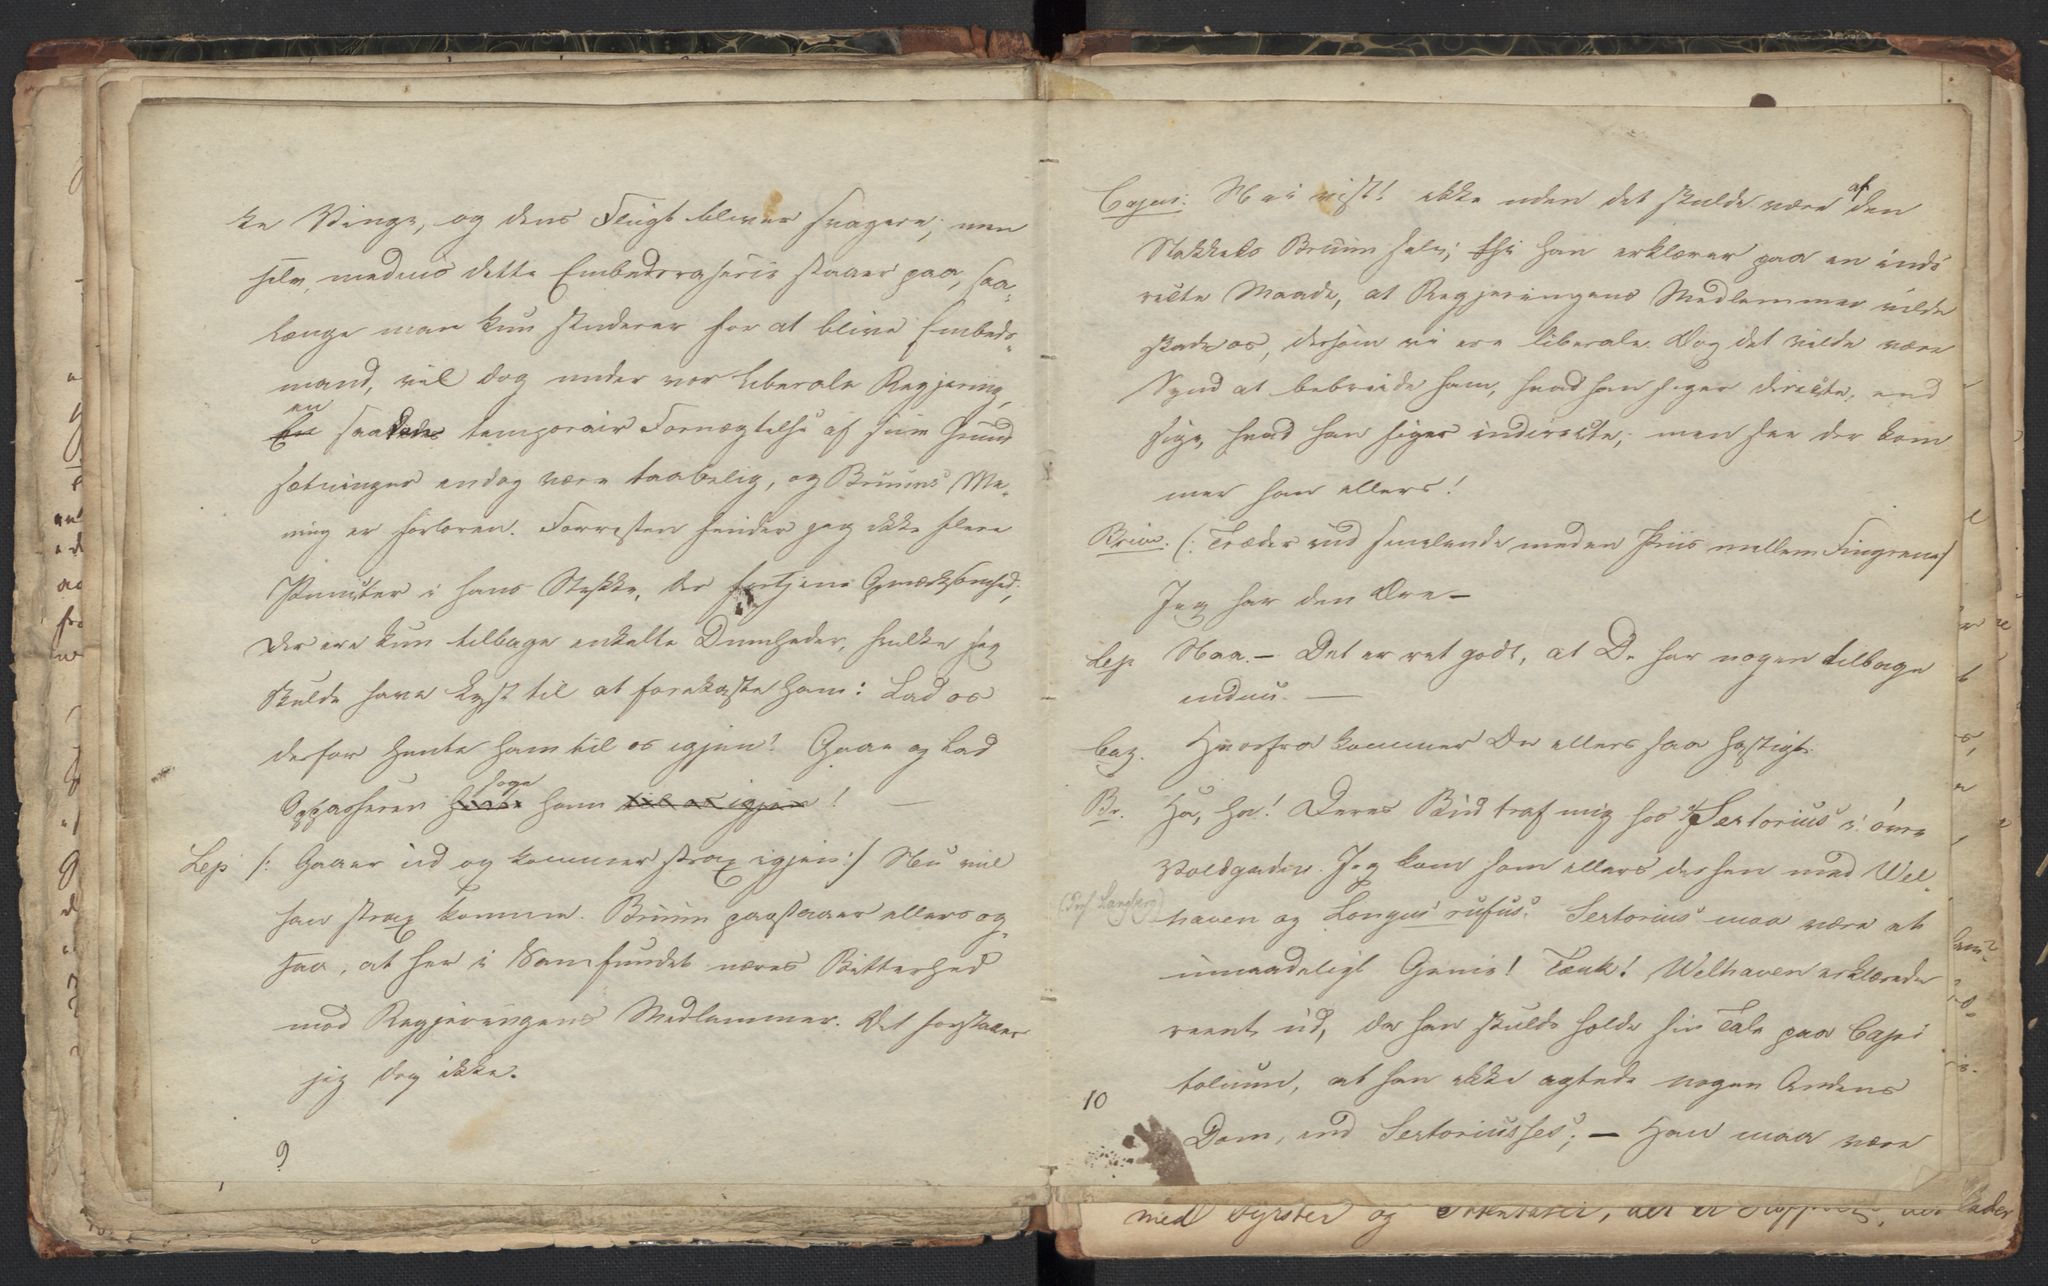 ke Vinge, og dens Flugt bliver svagere; men
selv, medens dette Embedsraseri staaer paa, saa-
længe man kun studerer for at blive Embeds-
mand, vil dog under vor liberale Regjering,
en
En saadan temporair Fornægtelse af sine Grund
sætninger endog være taabelig, og Bruuns Me-
ning er forloren. Forresten finder jeg ikke flere
Puncter i hans Stykke, der fortjene Opmærksomhed;
der ere kun tilbage enkelte Dumheder, hvilke jeg
skulde have Lyst til at forekaste ham: Lad os
derfor hente ham til os igjen! Gaae og lad
søge
Oppasseren hente ham til os igjen! —
Lep /: Gaaer ud og kommer strax igjen:/ Nu vil
han strax komme. Bruun paastaaer ellers og-
saa, at her i Samfundet næres Bitterhed
mod Regjeringens Medlemmer. Det forstaaer
jeg dog ikke.
9
Cajus: Nei vist! ikke uden det skulde være af den
Stakkels Bruun selv; thi han erklærer paa en indi
recte Maade, at Regjeringens Medlemmer vilde
skade os, dersom vi ere liberale. Dog det vilde være
Synd at bebreide ham, hvad han siger directe, end
sige, hvad han siger indirecte; men see der kom
mer han ellers!
Bruun. (: Træder ind smilende med en Priis mellem Fingrene/
Jeg har den Ære —
Lep Naa. — Det er ret godt, at De har nogen tilbage
endnu. —
Caj. Hvorfra kommer De ellers saa hastigt.
Br. Ha, ha! Deres Bud traf mig hos Sertorius i övre
Voldgaden. Jeg kom som ellers derhen med Wel-
(Prof Langberg)
haven og Longus rufus. Sertorius maa være et
umaadeligt Genie! Tænk! Welhaven erklærede
reent ud, da han skulde holde sin Tale paa Capi
tolium, at han ikke agtede nogen Andens
10
Dom, end Sertoriusses; — Han maa være
med Fyrster og